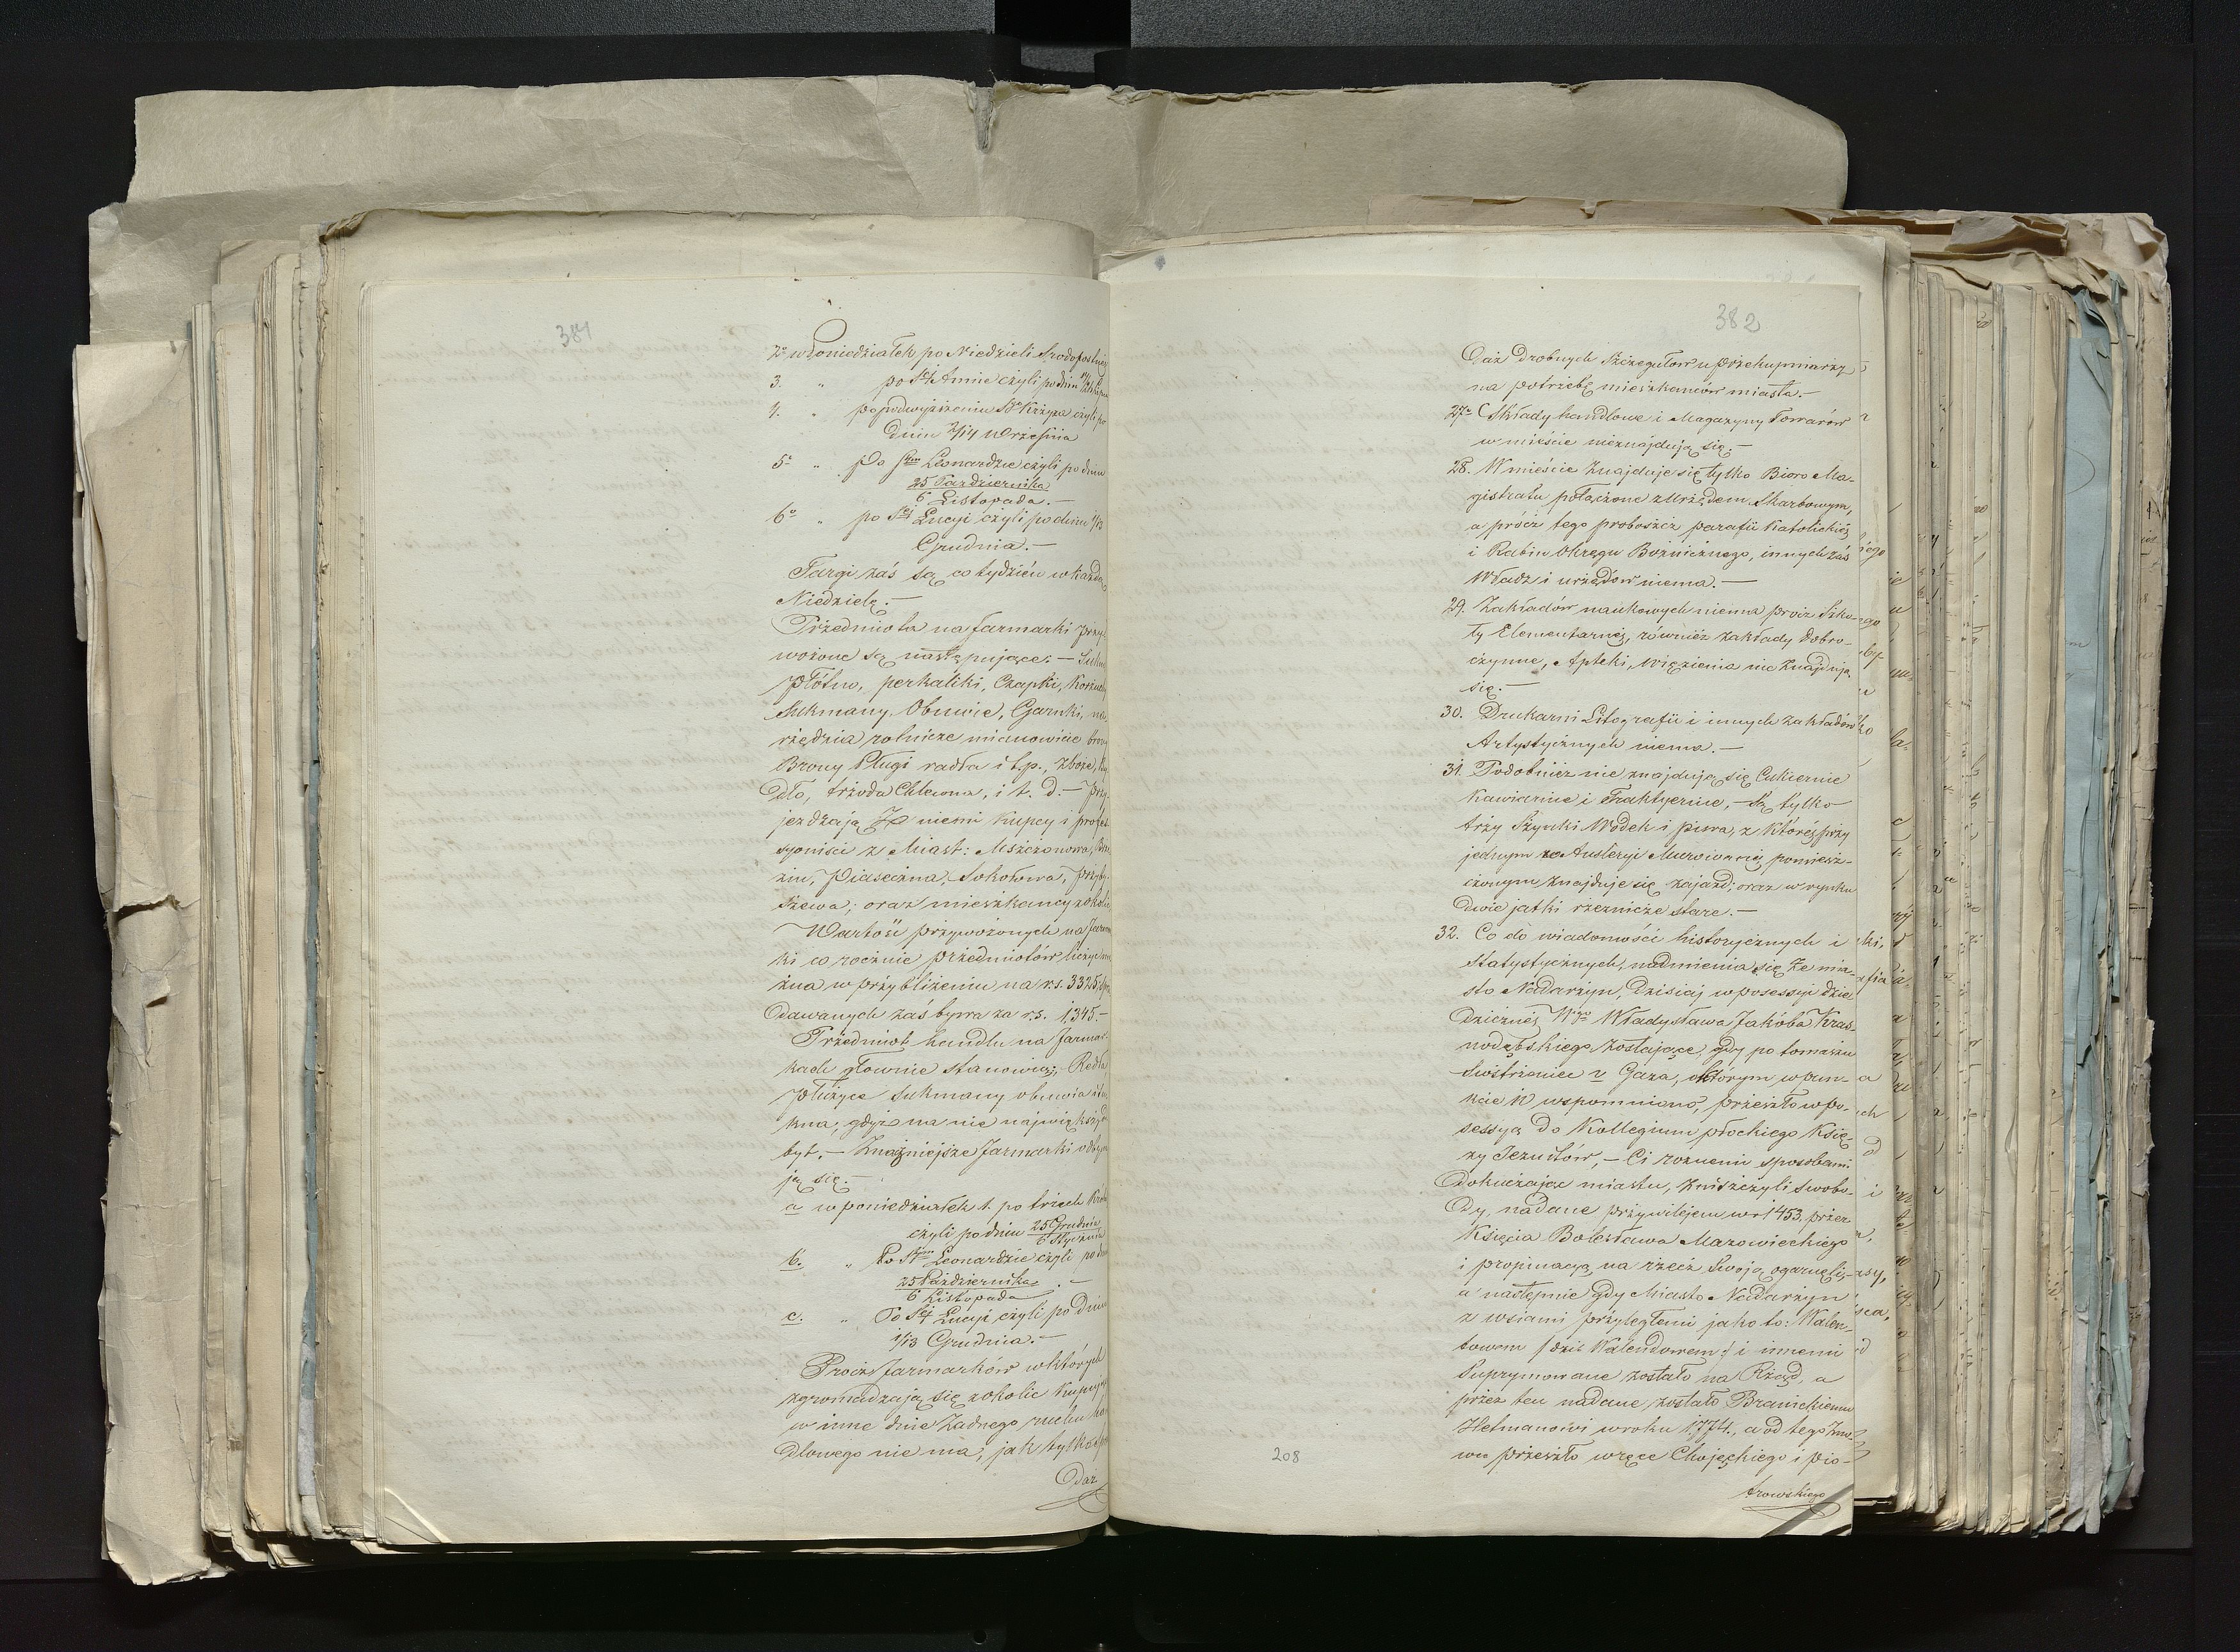 384
2o w Poniedziałek po Niedzieli Srodopostnéj
3. " po Stéj Annie czyli po dniu
4. " po podwyższeniu Sgo Krzyża czyli po
dniu 2/14 Września
5o " Po Stym Leonardzie czyli po dniu
25 Października
6 Listopada.—
6o " po Stéj Lucyi czyli po dniu 1/13
Grudnia.—
Targi zaś są co tydzień w każdą
Niedzielę.—
Przedmiota na Jarmarki przy-
wożone są następujące:—
Płótno, perkaliki, Czapki, Kożuchy
Sukmany, Obuwie, Garnki, na-
rzędzia rolnicze mianowicie
Brony Pługi radła i t.p., zboże, by-
dło, trzoda Chlewna, i t. d.— przy-
jeżdżają Ze niemi Kupcy i profes-
syoniści z Miast: Mszczonowa,
zin, Piaseczna, Sokołowa, przyby-
szewa; oraz mieszkancy z okolic
Wartość przywożonych na Jarmar
ki co rocznie przedmiotów liczyć mo
żna w przybliżeniu na r.s. 3325,
dawanych zaś bywa za r.s. 1,345.—
Przedmiot handlu na Jarmar-
kach głownie stanowią; Redła
płużyce Sukmany obuwia i
kna; gdyż na nie największy
byt.— Znaczniejsze Jarmarki odbywa
ją się.—
a w poniedziałek 1. po trzech Kró
czyli po dniu 25 Grudnia
6 Stycznia
b. " Po Stym Leonardzie czyli po dniu
25 Października
6 Listopada .—
c. " Po Stéj Lucyi czyli po dniu
1/13 Grudnia.—
Prócz Jarmarków w których
zgromadzają się z okolic Kupujący
w inne dnie żadnego ruchu han
dlowego nie ma; jak tylko
daż
382
daż drobnych Szczegułów u przekupniarzy
na potrzebę mieszkańców miasta.—
27o Składy handlowe i Magazyny Towarów
w mieście nieznajdują się.—
28. W mieście Znajduje się tylko Bioro Ma-
gistratu połączone z Urzędem Skarbowym,
a prócz tego proboszcz parafii Katolickiéj
i Rabin Okręgu Bożnicznego, innych zaś
Władz i urzędów niema.—
29. Zakładów naukowych niema prócz Szko-
ły Elementarnéj, również zakłady dobro-
czynne, Apteki, więzienia nie Znajdują
się.—
30. Drukarni Litografii i innych Zakładów
Artystycznych niema.—
31. Podobnież nie znajdują się Cukiernie
Kawiarnie i Traktyernie,— Są tylko
trzy Szynki Wódek i piwa, z któréj przy
jednym ze Austeryi Murowanéj pomiesz-
czonym znajduje się zajazd; oraz w rynku
dwie jatki rzeźnicze stare.—
32. Co do wiadomości historycznych i
statystycznych, nadmienia się że mia-
sto Nadarzyn, Dzisiaj w posessyi dzie
dzicznéj Wgo Władysława Jakóba Kras-
nodębskiego zostające, gdy po tomaszu
Swistrzonice v Gaza, októrym w pun-
kcie 10 wspomniano, przeszło w po-
sessyą do Kollegium płockiego Księ-
ży Jezuitów,— Ci roznemi sposobami
dokuczając miastu, zniszczyli Swobo-
dy, nadane przywilejem w r 1453. przez
Księcia Bolesława Mazowieckiego
i propinacyą na rzecz Swoją ogarnęli,—
a następnie gdy Miasto Nadarzyn
z wsiami przyległemi jako to: Walen-
towem /dziś Walendowem/ i innemi
Supрymowane zostało na Rząd, a
przez ten nadane zostało Branickiemu
Hetmanowi w roku 1774., a od tego zno-
wu przeszło w ręce Chojęckiego i pio-
trowskiego
208